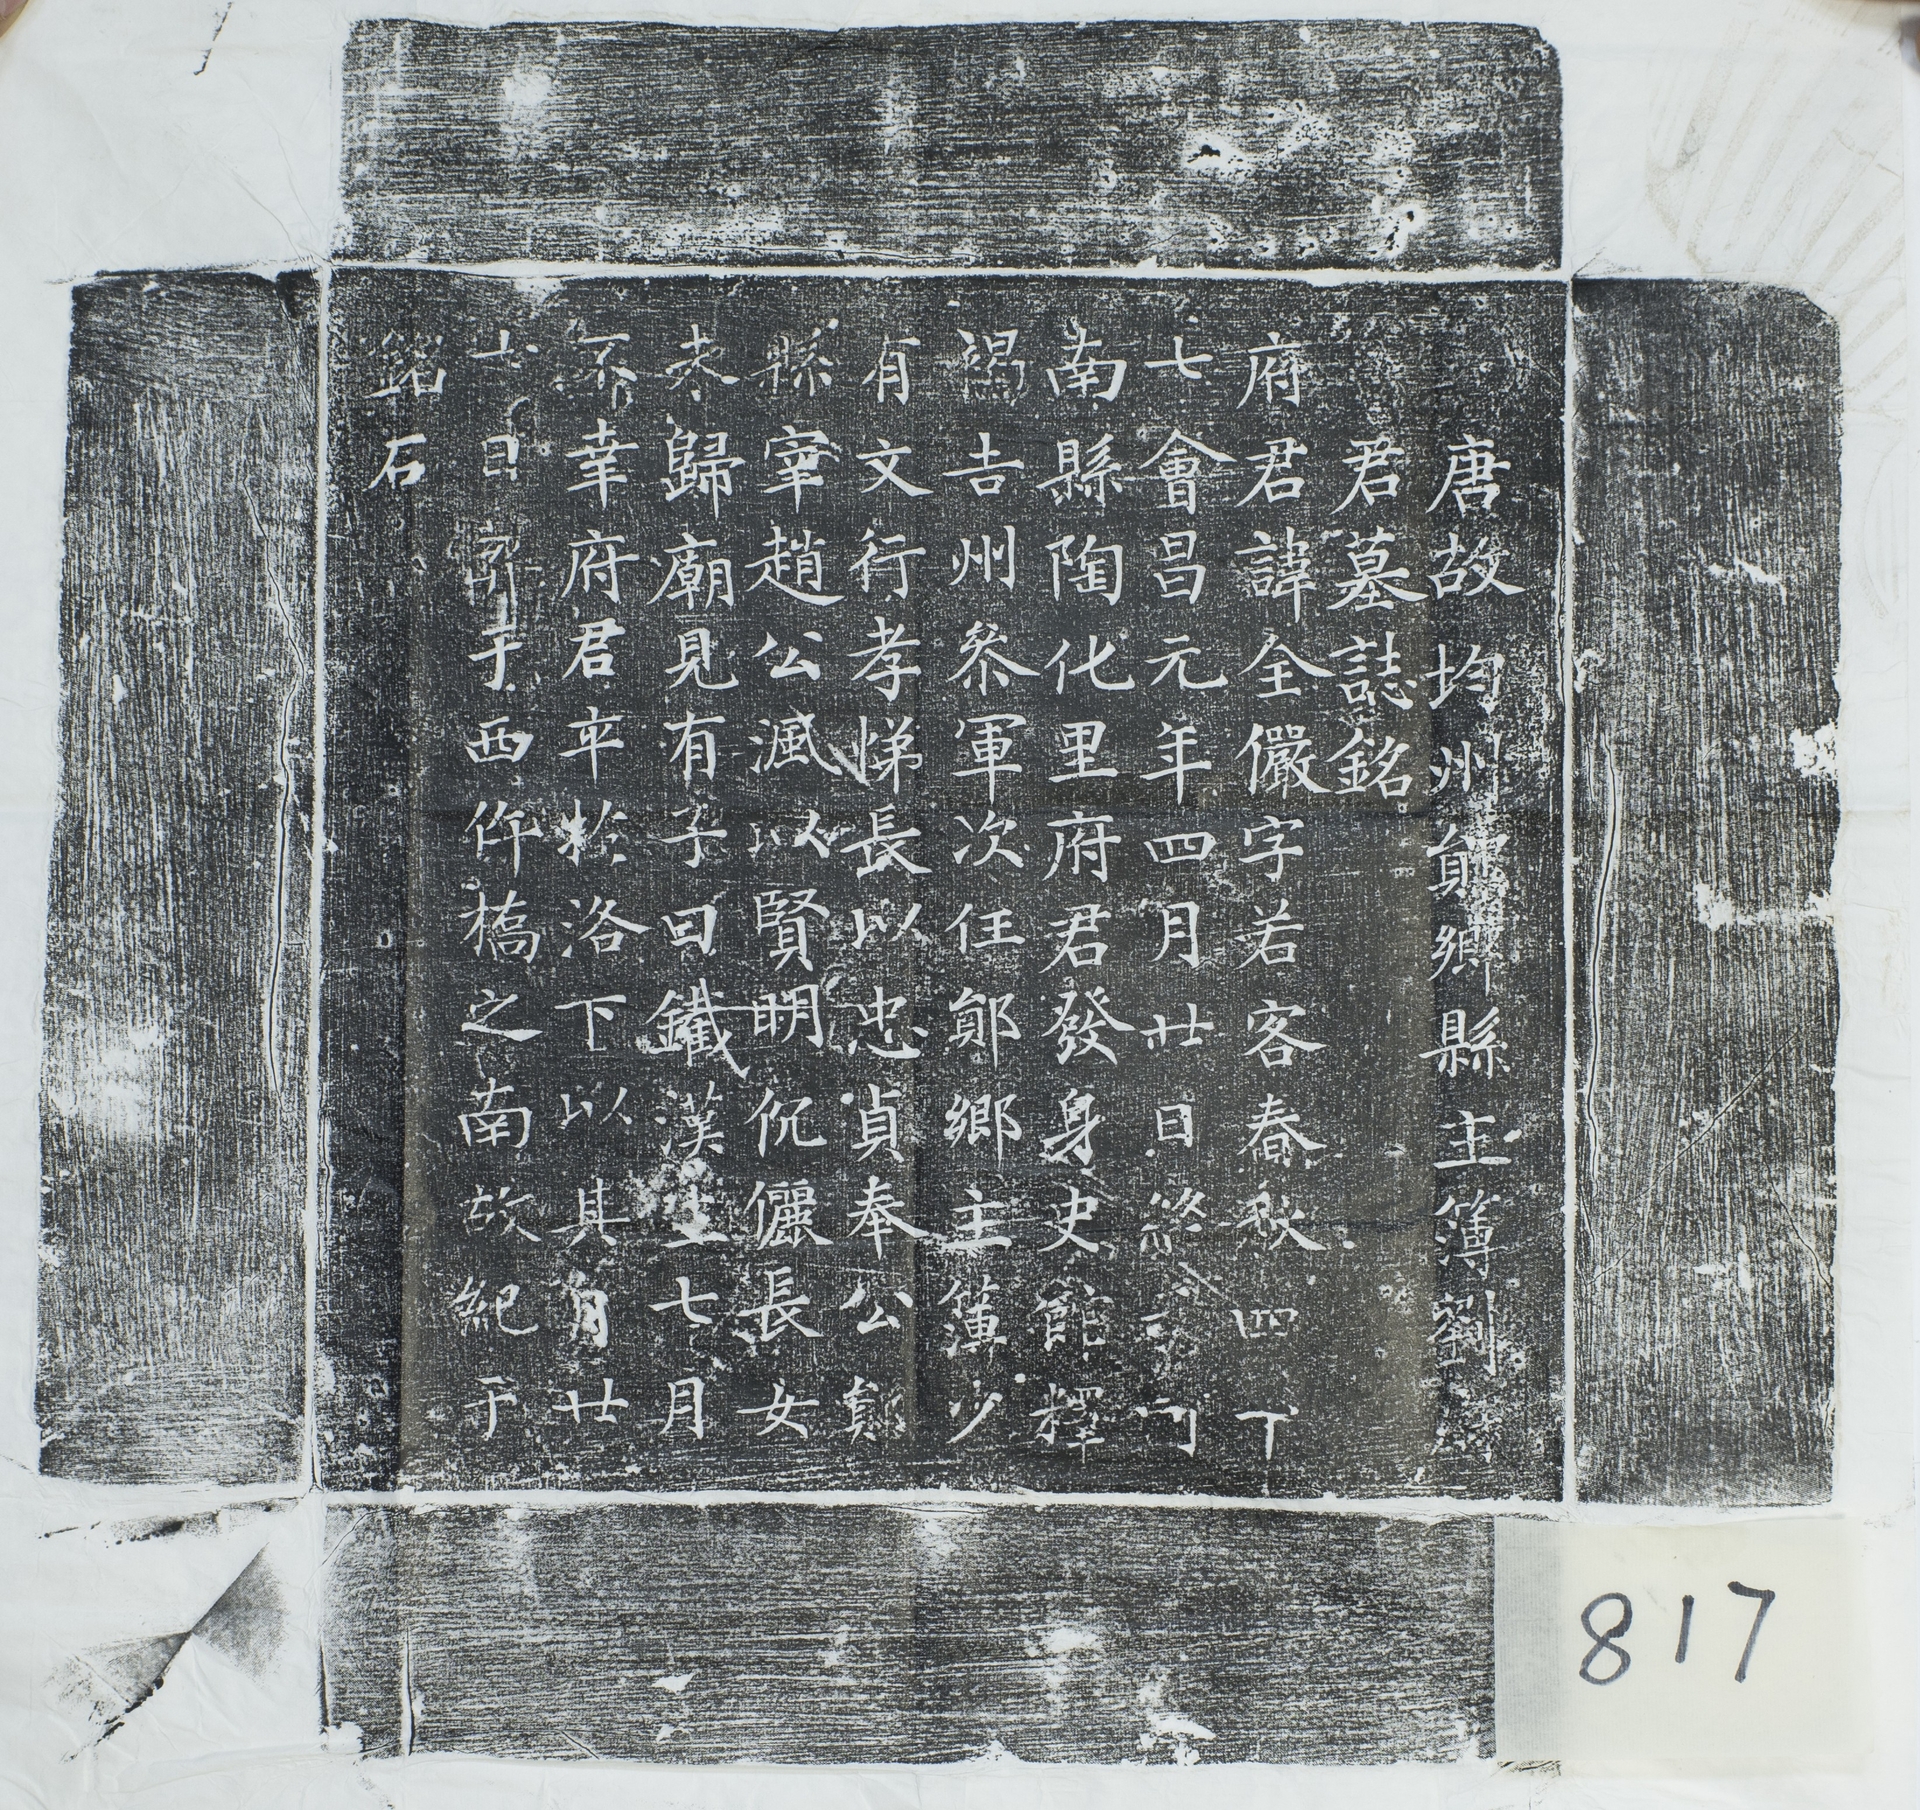 唐故均州鄖鄉縣主簿劉府
君墓誌銘
府君諱全儼字若客春秋四丁
七會昌元年四月廿日終于河
南縣陶化里府君發身史館釋
褐吉州參軍次任鄖鄉主簿少
有文行孝悌長以忠貞奉公鄭
縣宰趙公渢以賢明伉儷長女
未歸廟見有子曰鐵漢生七月
不幸府君卒於洛下以其月廿
七日葬于西仵橋之南故紀于
銘石
817